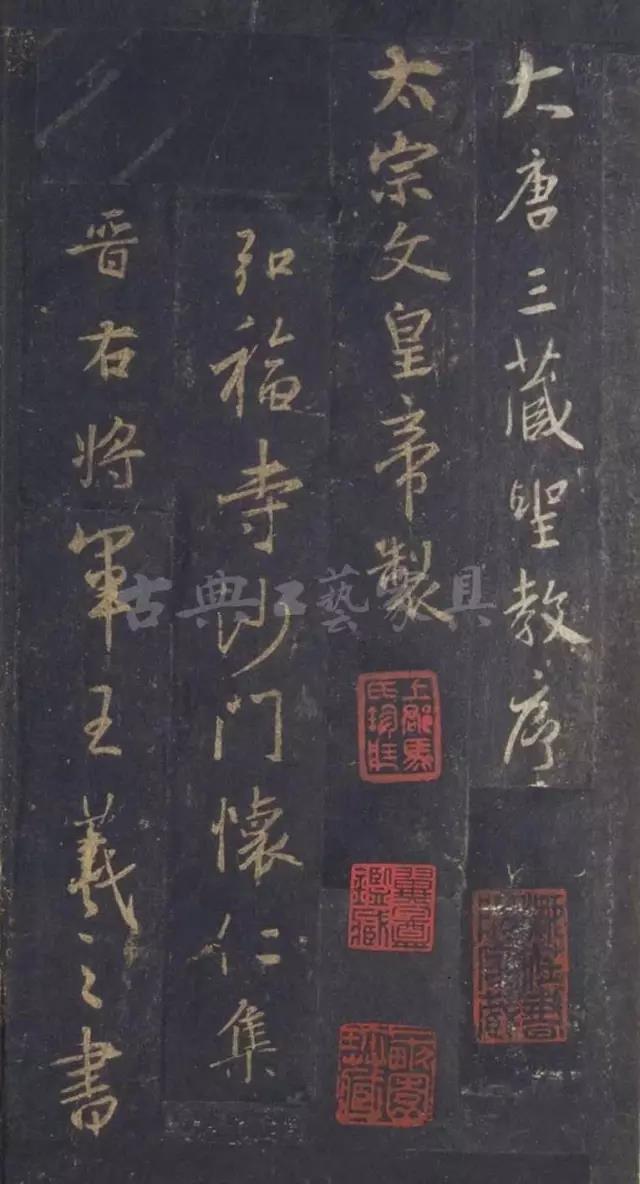 大唐三藏聖教序
太宗文皇帝製
弘福寺沙門懷仁集
晋右將軍王羲之書
上郡馬氏珍匨
翼盦鑑藏
古典工藝家具